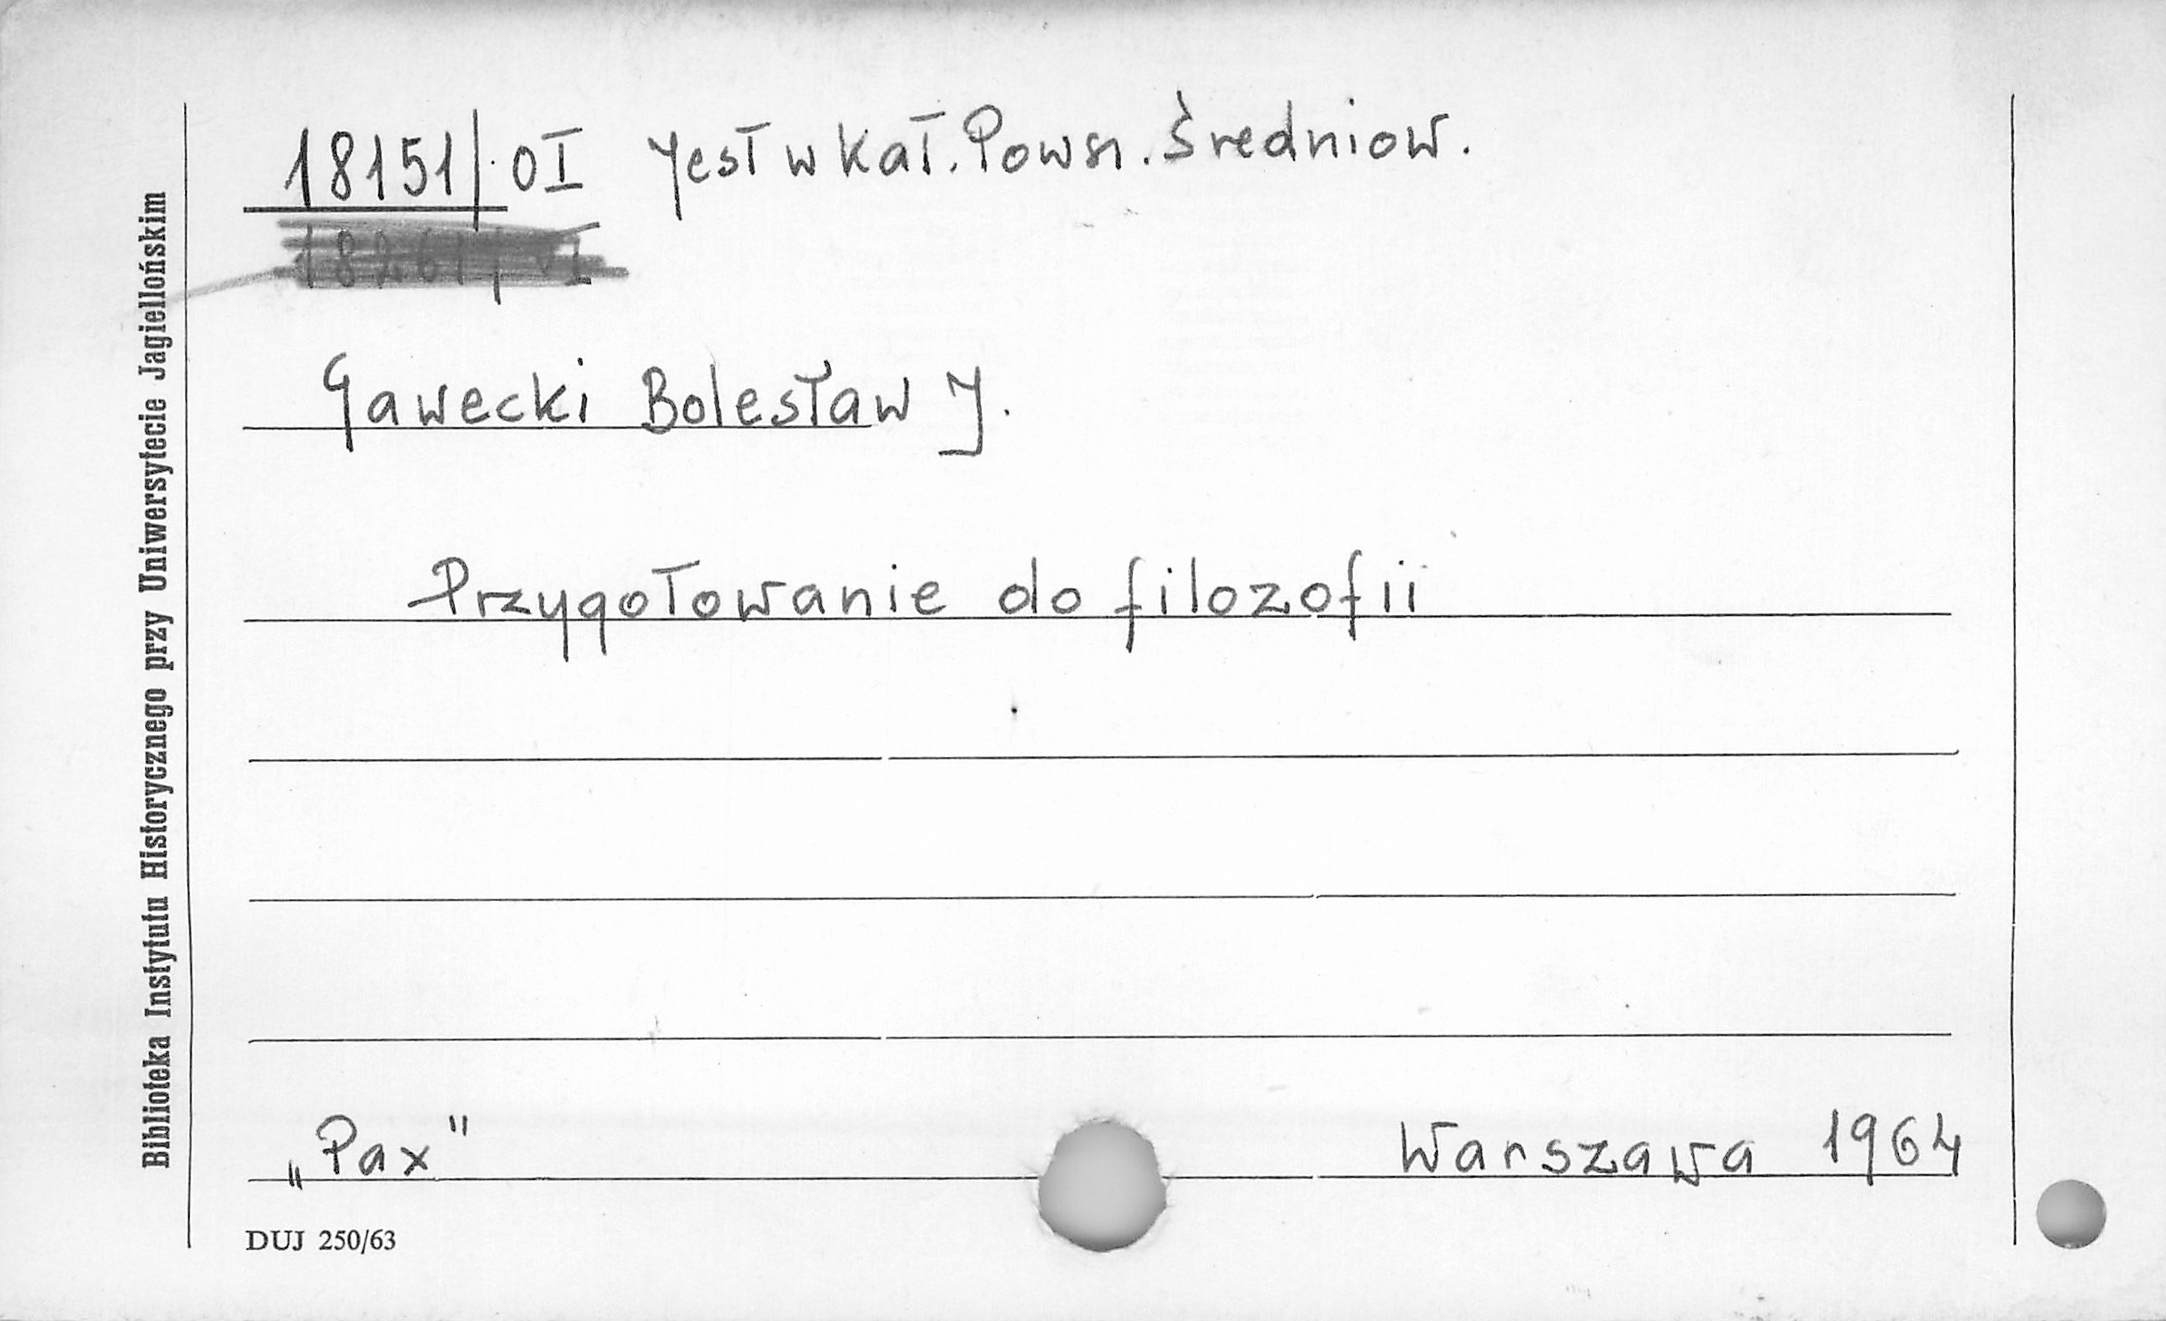 18151/OI Jest w kat. Powsz. Średniow.
Gawecki Bolesław J.
Przygotowanie do filozofii
„Pax" Warszawa 1964
DUJ 250/63
Biblioteka Instytutu Historycznego przy Uniwersytecie Jagiellońskim